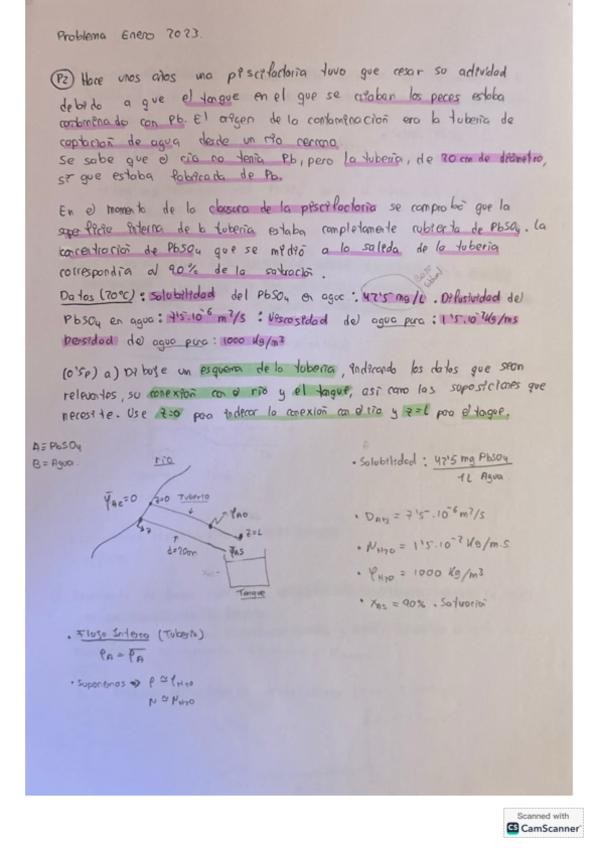 Problema Enero 2023.
P2 Hace unos años una piscifactoria tuvo que cesar su actividad
debido a que el tanque en el que se criaban los peces estaba
contaminado con Pb. El origen de la contaminación era la tubería de
captación de agua desde un río cercano.
Se sabe que el río no tenía Pb, pero la tubería, de 20 cm de diámetro,
sí que estaba fabricada de Pb.
En el momento de la clausura de la piscifactoría se comprobó que la
superficie interna de la tubería estaba completamente cubierta de PbSO4. La
concentración de PbSO4 que se midió a la salida de la tubería
correspondía al 90% de la saturación.
Datos (20°C): Solubilidad del PbSO4 en agua: 42'5 mg/L. Difusividad del
PbSO4 en agua: 7'5·10-6 m²/s : Viscosidad del agua pura: 1'5·10-2 Kg/ms
Densidad del agua pura: 1000 Kg/m3
(0'5p) a) Dibuje un esquema de la tubería, indicando los datos que sean
relevantes, su conexión con el río y el tanque, así como las suposiciones que
necesite. Use z=0 para indicar la conexión con el río y z=L para el tanque.
A≡PbSO4
B≡Agua.
RIO
z=0 Tubería
z=L
d=20cm
Tanque
• Solubilidad: 42'5 mg PbSO4
1L Agua
• DAB = 7'5·10-6 m²/s
• μH2O = 1'5·10-2 Kg/m.s
• ρH2O = 1000 Kg/m3
• = 90% · Saturación
• Flujo Interno (Tubería)
• Suponemos → ρ ≅ ρH2O
μ ≅ μH2O
Scanned with
CS CamScanner